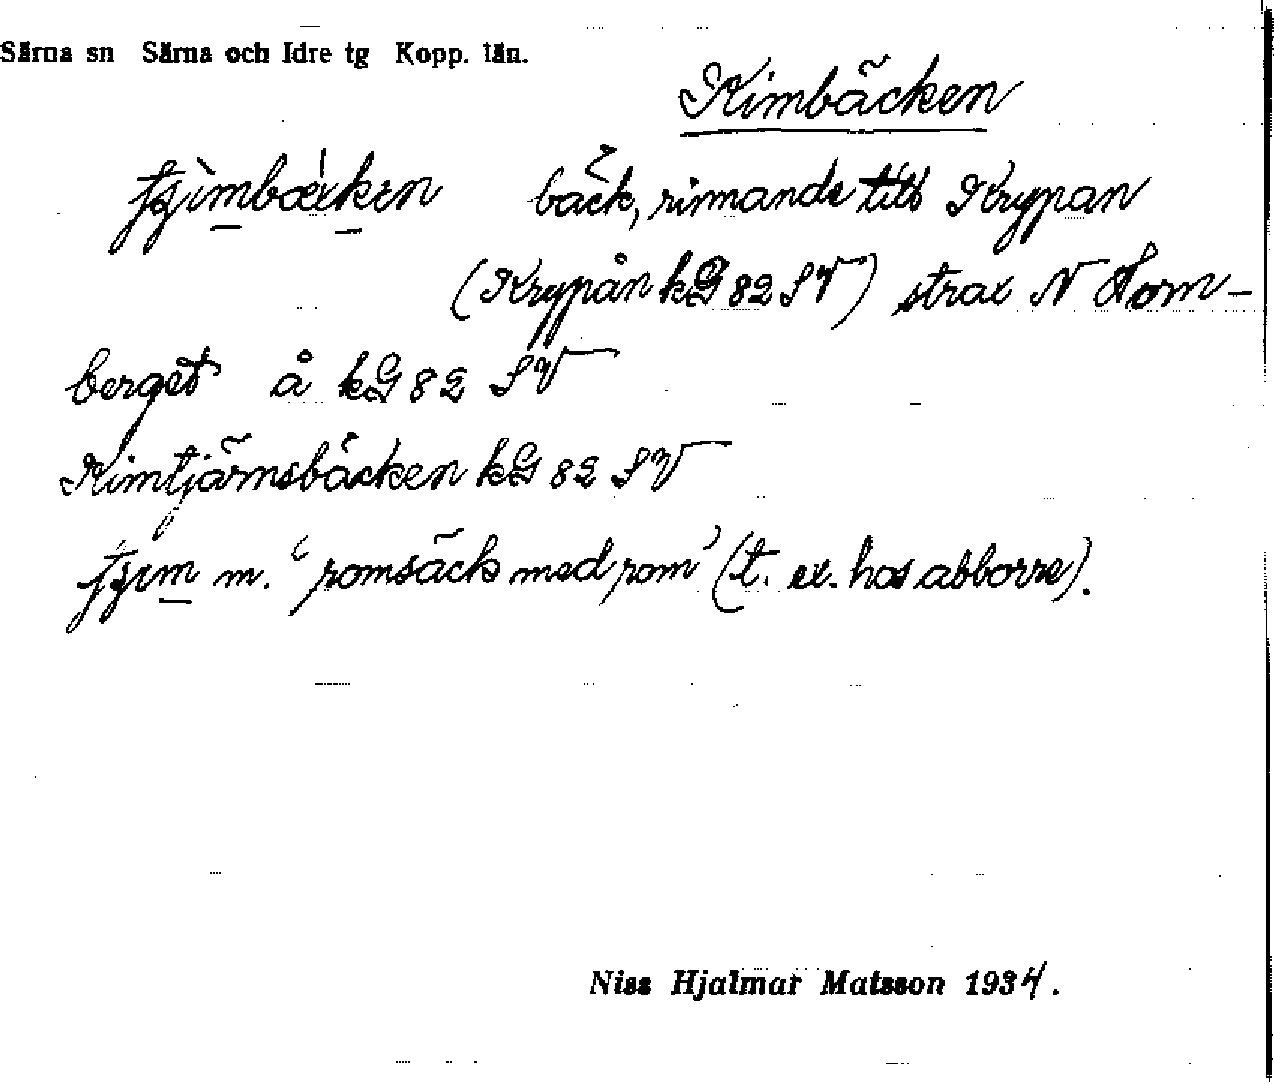 Särna sn Särna och Idre tg Kopp. län.
Kimbäcken
bäck, rinnande till Krypan
(Krypån kG 82 SV) strax N Hom-
berget å kG 82 SV
Kimtjärnsbäcken kG 82 SV
m. ‘romsäck med rom’ (t. ex. hos abborre).
Niss Hjalmar Matsson 1934.